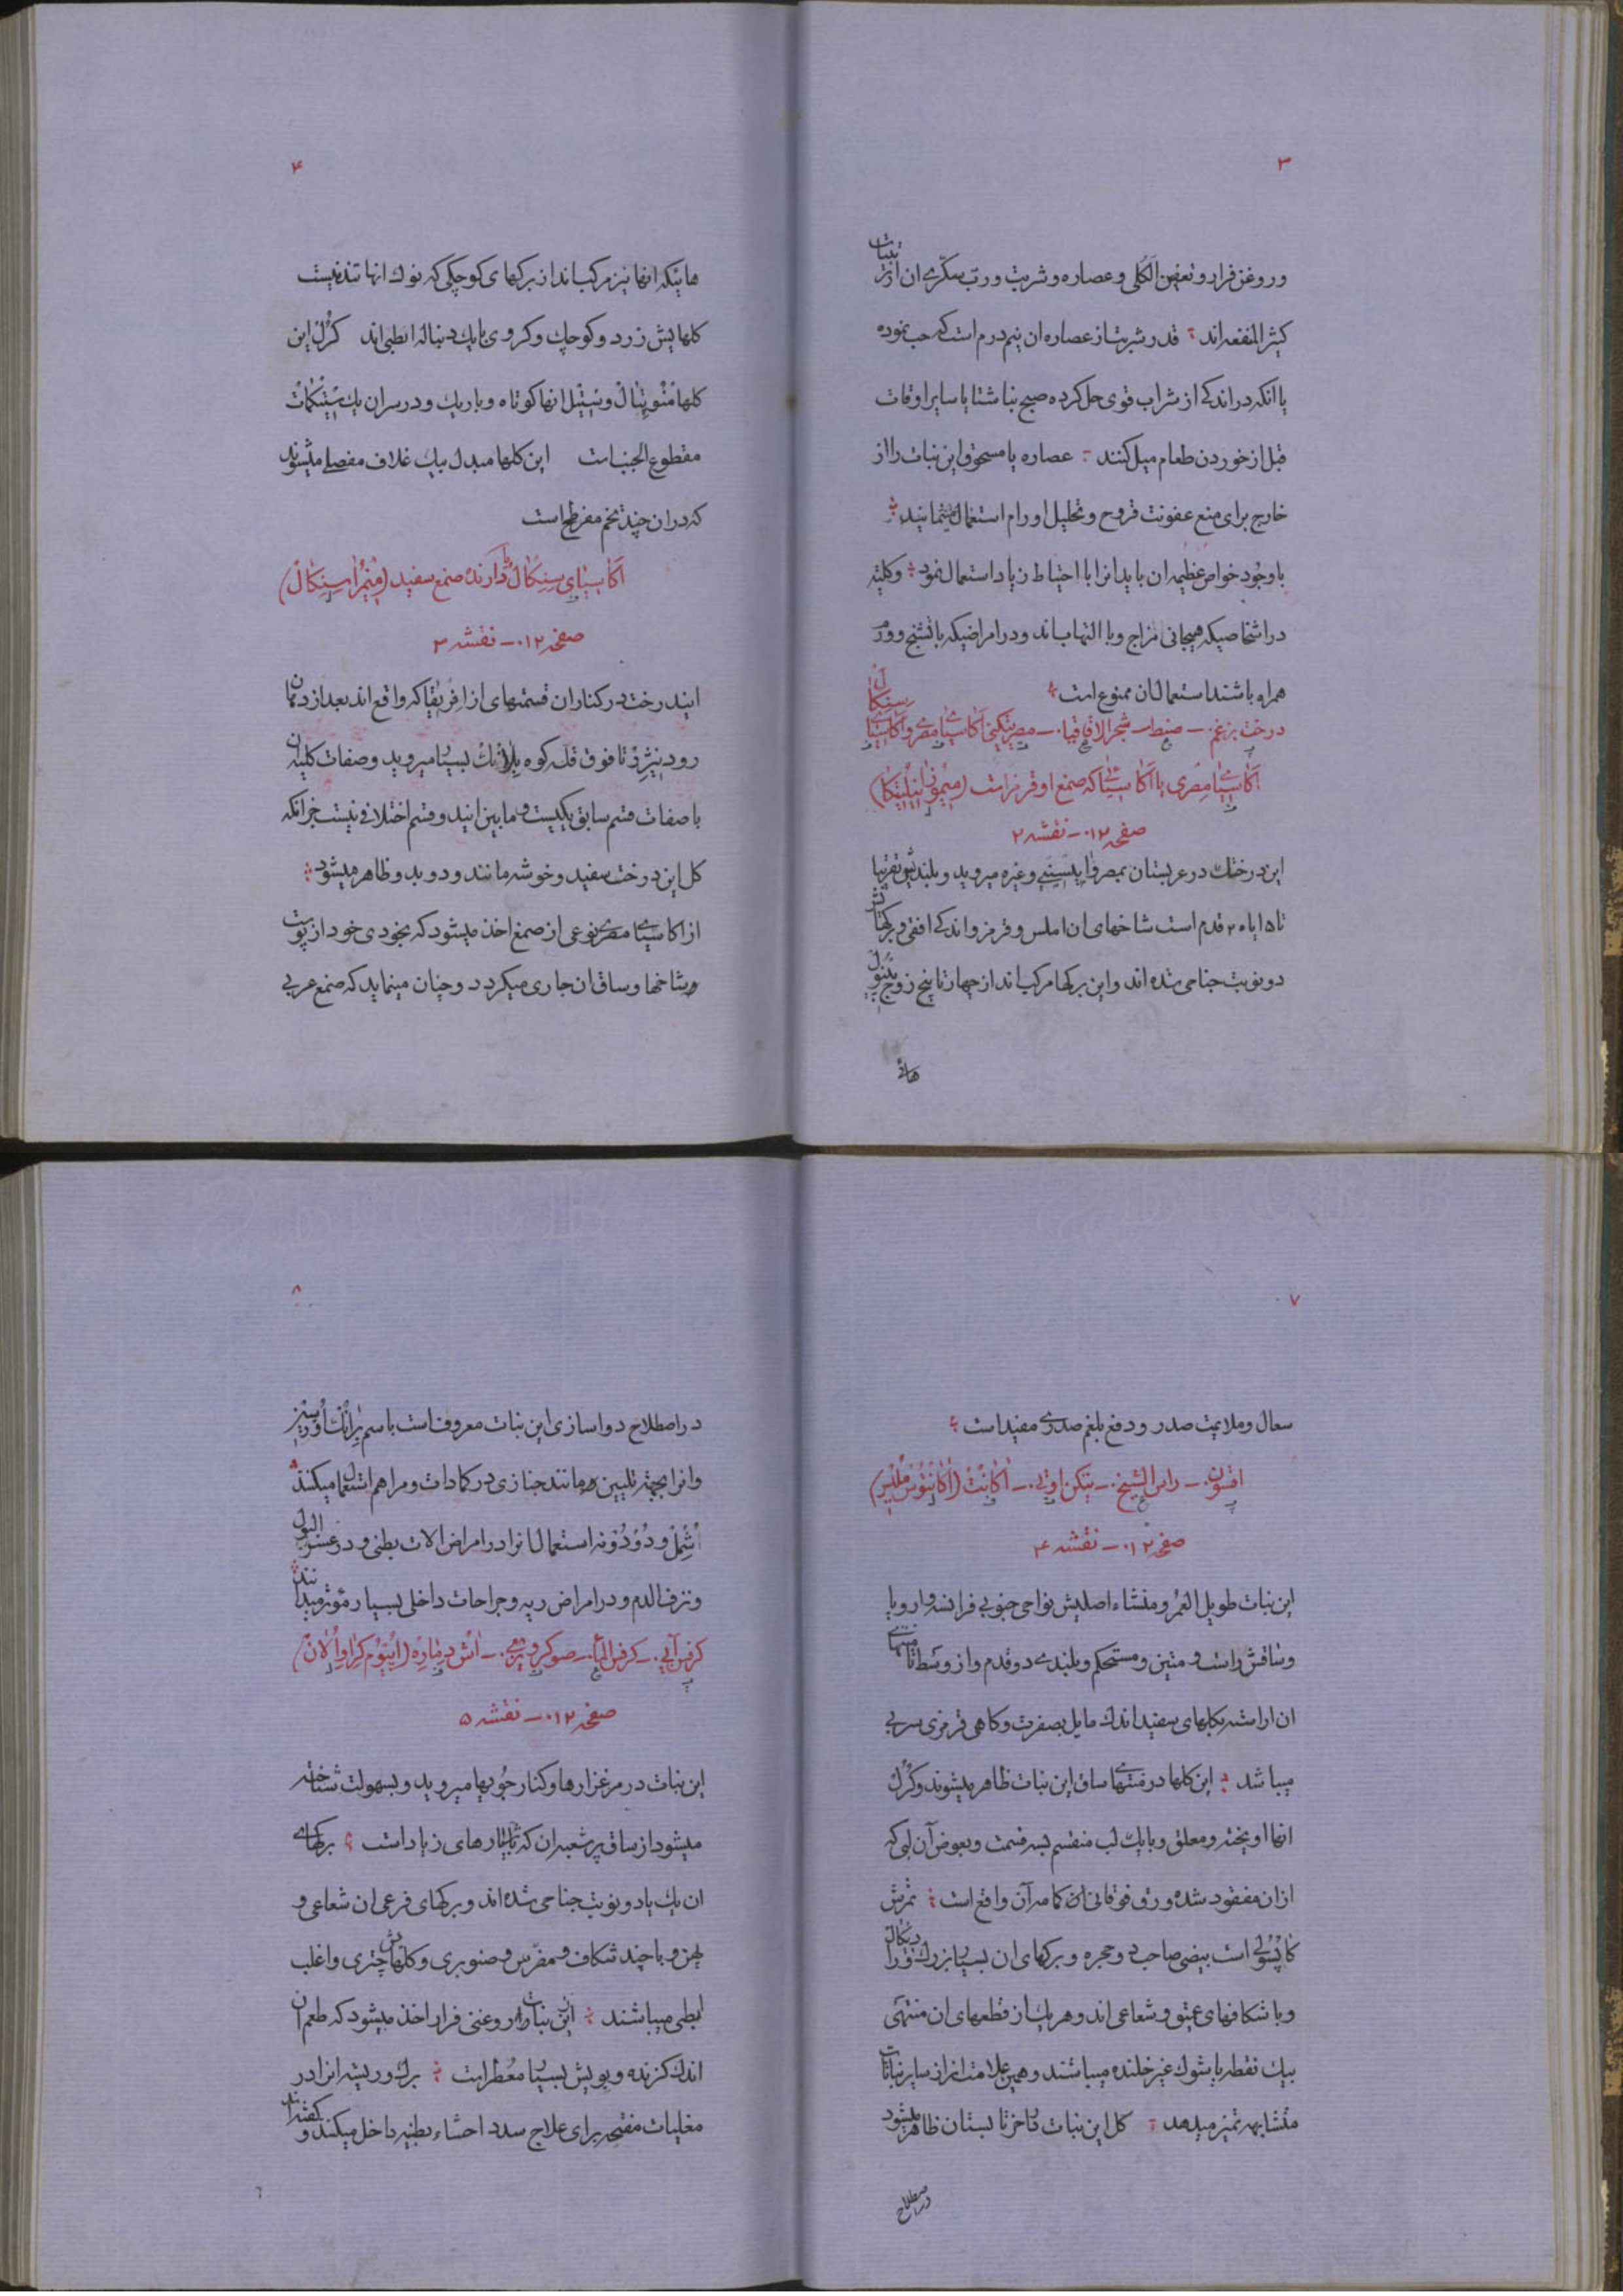 ۳
و روغن فرار و تعفین الکلی و عصاره و شربت و رب سکری ان از این نبات
کثیر المنفعه اند قدر شربت از عصاره ان نیم درم است که حب نموده
یا انکه در اندکی از شراب قوی حل کرده صبح ناشتا یا سایر اوقات
قبل از خوردن طعام میل کنند عصاره یا مسحوق این نبات را از
خارج برای منع عفونت قروح و تحلیل اورام استعمال مینمایند
با وجود خواص عظیمه ان باید انرا با احتیاط زیاد استعمال نمود وکلیته
در اشخاصیکه هیجانی مزاج و با التهاب اند و در امراضیکه با تشنج و ورم
همراه باشند استعمال ان ممنوع است
درخت بزغم ـ صنط ـ شجر الاقاقیا ـ اکاسیای مصری و اکاسیای سنکال
اکاسیای مصری یا اکاسیائی که صمغ او قرمز است
صفحه ۰۱۲ ـ نقشه ۲
این درختک در عربستان بمصر و غیره میروید و بلندیش تقریبا
تا ۱۵ یا ۲۰ قدم است شاخهای ان املس و قرمز و اندکی افقی و برکهایش
دو نوبت جناحی شده اند و این برکها مرکب اند از چهار تا پنج زوج پینول
هائی
۴
هائیکه انها نیز مرکب اند از برکهای کوچکی که نوک انها تند نیست
کلهایش زرد و کوچک و کروی با یک دنباله ابطی اند کرل این
کلها منوپتال و پیستیل انها کوتاه و باریک و در سر ان یک ستیکمات
مقطوع الجنب است این کلها مبدل بیک غلاف مفصلی میشوند
که در ان چند تخم مفرطح است
اکاسیای سنکال یا دارنده صمغ سفید (میمزا سنکال)
صفحه ۰۱۲ ـ نقشه ۳
ایندرخت در کناران قسمتهای از افریقا که واقع اند بعد از دهان
رود نیژر تا فوق قله کوه بلانک بسیار میروید و صفات کلیه ان
با صفات قسم سابق یکیست و مابین ایندو قسم اختلافی نیست جز انکه
کل این درخت سفید و خوشه مانند و دو بدو ظاهر میشود
از اکاسیای مصری نوعی از صمغ اخذ میشود که بخودی خود از پوست
و شاخها و ساق ان جاری میکردد و چنان مینماید که صمغ عربی
۷
سعال و ملایمت صدر و دفع بلغم صدری مفید است
اقسون ـ راس الشیخ ـ اکانت (اکانتوس ملیس)
صفحه ۰۱۲ ـ نقشه ۴
این نبات طویل العمر و منشاء اصلیش نواحی جنوبی فرانسه و اروپا
و ساقش راست و متین و مستحکم و بلندی دو قدم و از وسط تا منتهای
ان اراسته بکلهای سفید اندک مایل بصفرت و کاهی قرمزی سربی
میباشد این کلها در منتهای ساق این نبات ظاهر میشوند و کرل
انها اویخته و معلق و با یک لب منقسم بسه قسمت و بعوض آن لبی که
از ان مفقود شده ورق فوقانی ان کاسه آن واقع است ثمرش
کاپسولی است بیضی صاحب دو حجره و برکهای ان بسیار بزرک و رادیکال
و با شکافهای عمیق و شعاعی اند و هر یک از قطعهای ان منتهی
بیک نقطه یا شوک غیر خلنده میباشند و همین علامت انرا از سایر نباتات
متشابهه تمیز میدهد کل این نبات در اخر تابستان ظاهر میشود
در اصطلاح
۸
در اصطلاح دواسازی این نبات معروفست باسم برانک اورسین
و انرا بجهة تلیین مانند خبازی در کمادات و مراهم استعمال میکنند
اشمل و دودونه استعمال انرا در امراض الات بطنی و در عسر البول
و نزف الدم و در امراض ریه و جراحات داخلی بسیار مؤثر میدانند
کرفس آبی ـ کرفس الماء ـ اش دماره (اپیوم کراوالان)
صفحه ۰۱۲ ـ نقشه ۵
این نبات در مرغزارها و کنار جویها میروید و بسهولت شناخته
میشود از ساق پر شعبه ان که با شیارهای زیاد است برکهای
ان یک یا دو نوبت جناحی شده اند و برکهای فرعی ان شعاعی و
پهن و با چند شکاف و مضرس و صنوبری و کلهایش چتری و اغلب
ابطی میباشند از این نبات روغنی فرار اخذ میشود که طعم ان
اندک کزنده و بویش بسیار معطر است برک و ریشه انرا در
مغلیات مفتحه برای علاج سدد احشاء بطنیه داخل میکنند و کفته اند